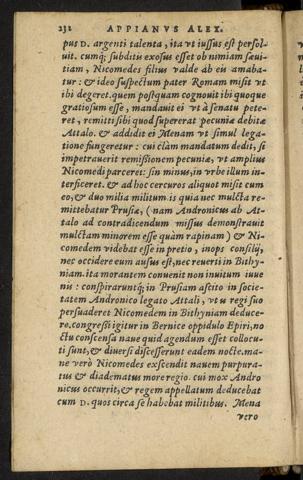 232 APPIANVS ALEX.
pus D. argenti talenta, ita vt iussus est persol-
uit. cumq; subditis exosus esset ob nimiam sæui-
tiam, Nicomedes filius valde ab eis amaba-
tur: & ideo suspectum pater Romam misit vt
ibi degeret. quem posquam cognouit ibi quoque
gratiosum esse, mandauit ei vt à senatu pete-
ret, remitti sibi quod supererat pecuniæ debitæ
Attalo. & addidit ei Menam vt simul lega-
tione fungeretur: cui clàm mandatum dedit, si
impetrauerit remissionem pecuniæ, vt amplius
Nicomedi parceret: sin minus, in vrbe illum in-
terficeret. & ad hoc cercuros aliquot misit cum
eo, & duo milia militum. is quia nec mulcta re-
mittebatur Prusiæ, (nam Andronicus ab At-
talo ad contradicendum missus demonstrauit
mulctam minorem esse quàm rapinam) & Ni-
comedem videbat esse in pretio, inops consilij,
nec occidere eum ausus est, nec reuerti in Bithy-
niam. ita morantem conuenit non inuitum iuue
nis: conspiraruntq; in Prusiam ascito in socie-
tatem Andronico legato Attali, vt is regi suo
persuaderet Nicomedem in Bithyniam deduce-
re. congressi igitur in Bernice oppidulo Epiri, no
ctu conscensa naue quid agendum esset collocu-
ti sunt, & diuersi discesserunt eadem nocte. ma-
ne verò Nicomedes exscendit nauem purpura-
tus & diadematus more regio. cui mox Andro
nicus occurrit, & regem appellatum deducebat
cum D. quos circa se habebat militibus. Menas
vero